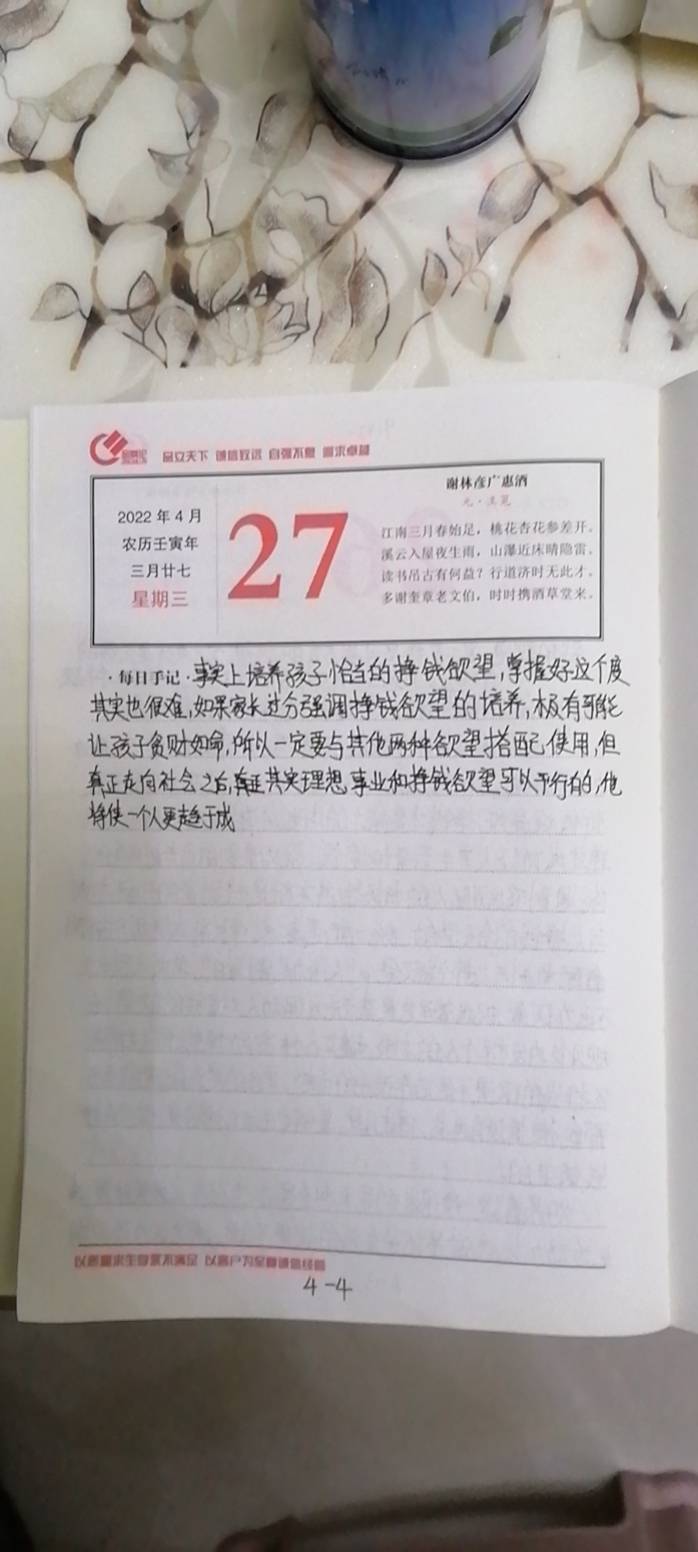 品立天下 诚信致远 自强不息 追求卓越
2022年4月
农历壬寅年
三月廿七
星期三
27
谢林彦广惠酒
元·王冕
江南三月春始足，桃花杏花参差开。
溪云入屋夜生雨，山瀑近床晴隐雷。
读书吊古有何益？行道济时无此才。
多谢奎章老文伯，时时携酒草堂来。
·每日手记·事实上培养孩子恰当的挣钱欲望，掌握好这个度
其实也很难，如果家长过分强调挣钱欲望的培养，极有可能
让孩子贪财如命，所以一定要与其他两种欲望搭配使用，但
真正走向社会之后，其实理想，事业和挣钱欲望可以予行的，他
将使一个人更趋于成
以质量求生存永不满足 以客户为至尊诚信经营
4-4